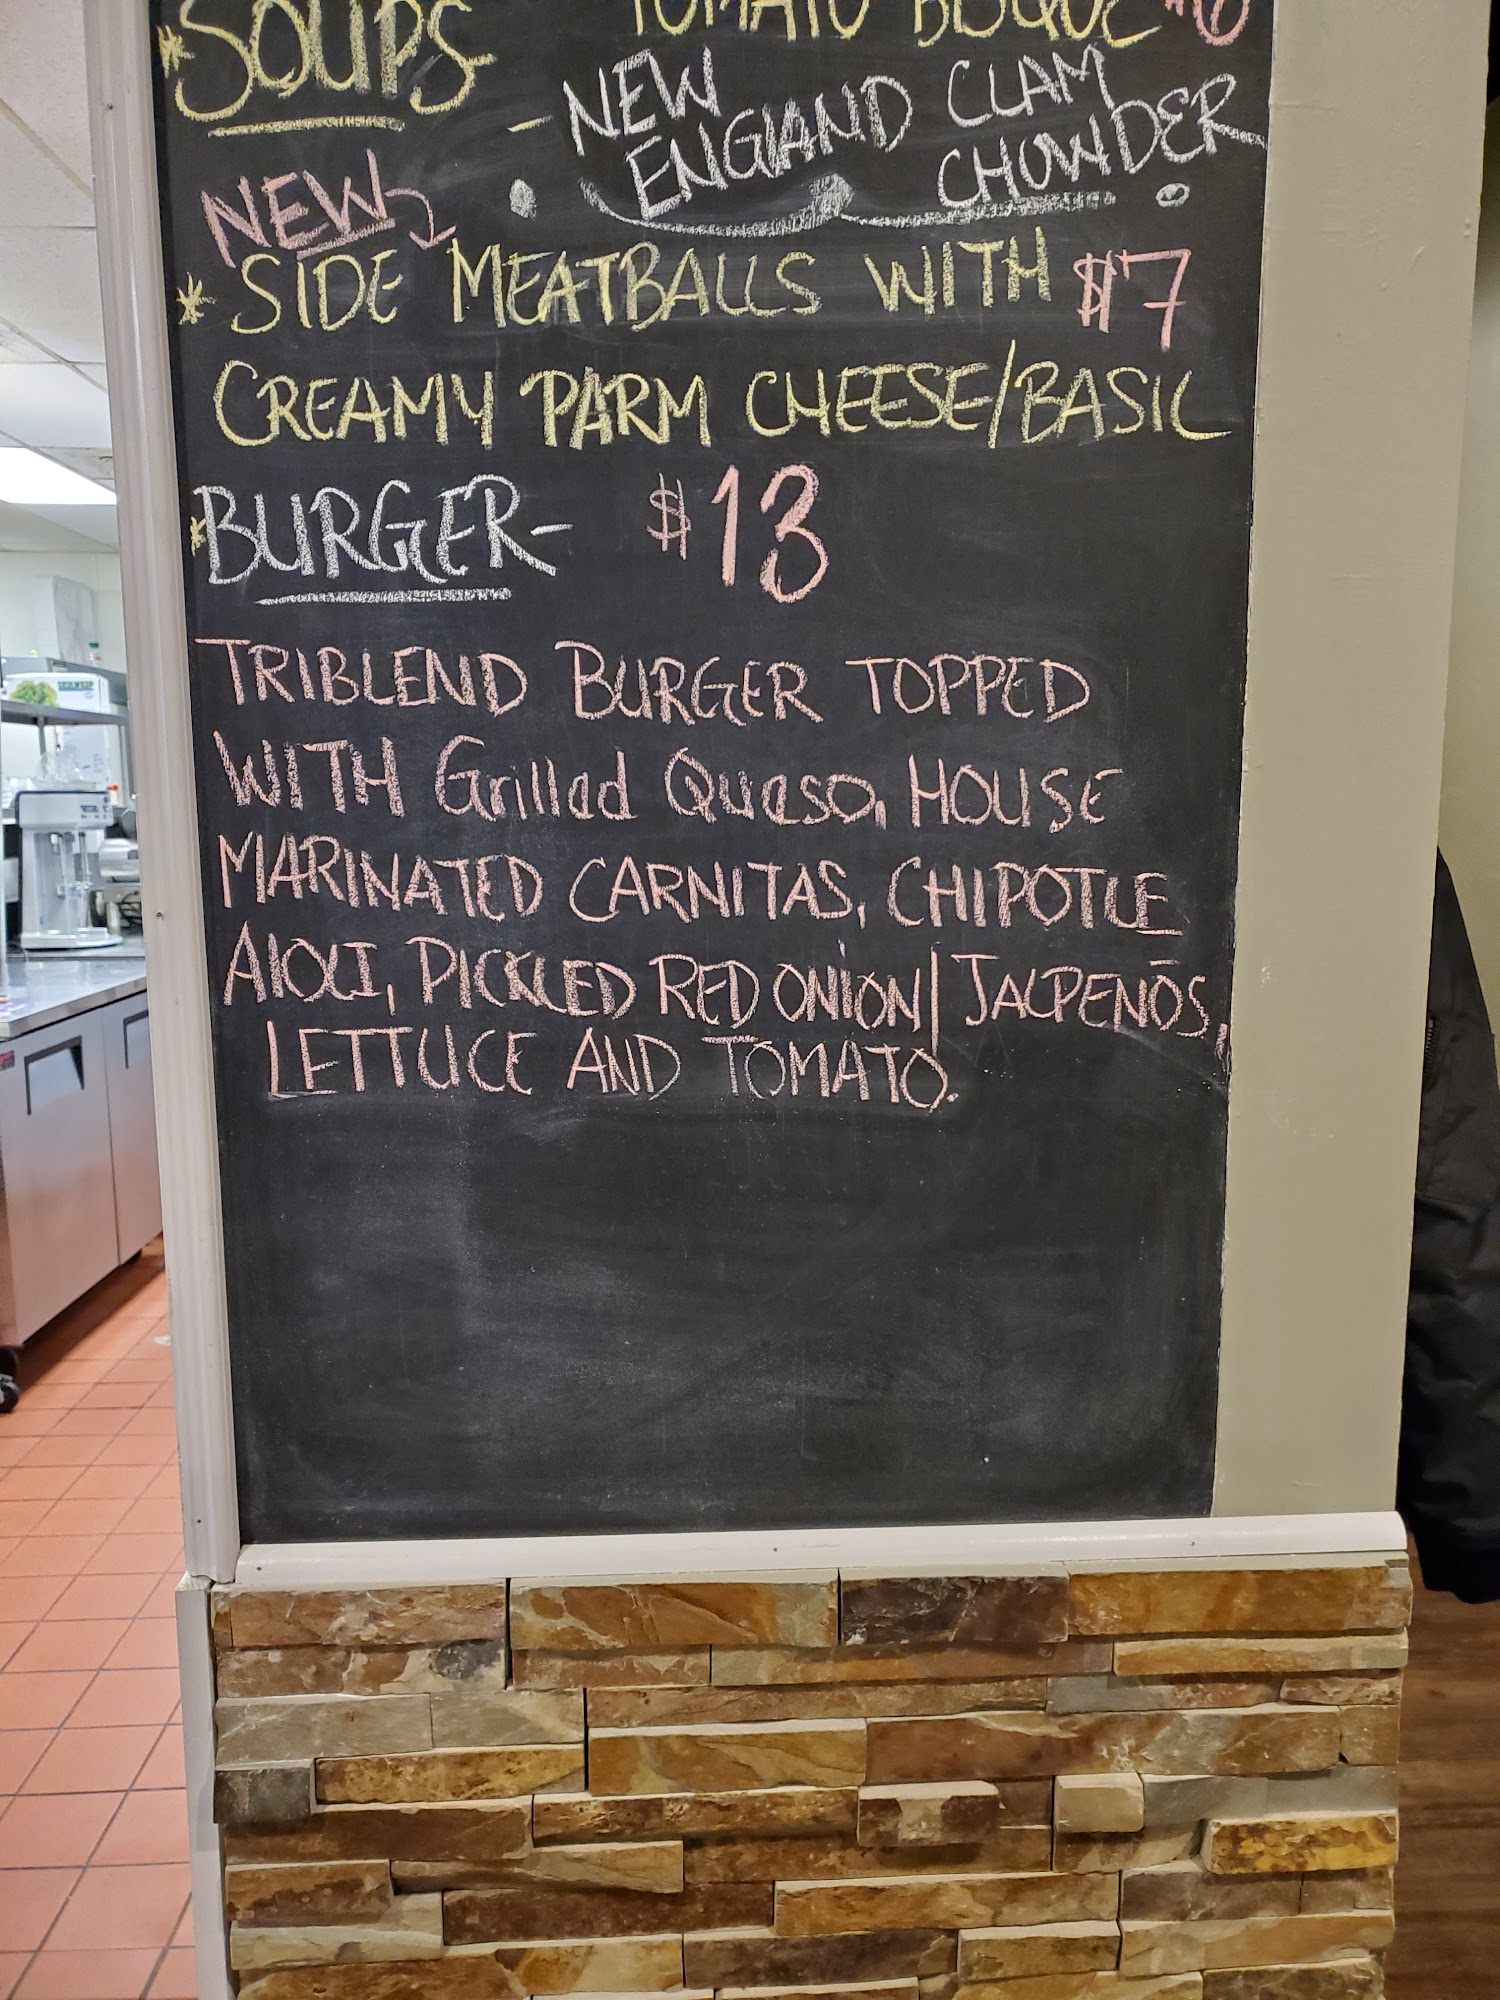 *SOUPS TOMATO BISQUE $6
- NEW ENGLAND CLAM CHOWDER
NEW
* SIDE MEATBALLS WITH $7
CREAMY PARM CHEESE/BASIL
*BURGER- $13
TRIBLEND BURGER TOPPED
WITH Grilled Queso, HOUSE
MARINATED CARNITAS, CHIPOTLE
AIOLI, PICKLED RED ONION/JALPEÑOS,
LETTUCE AND TOMATO.